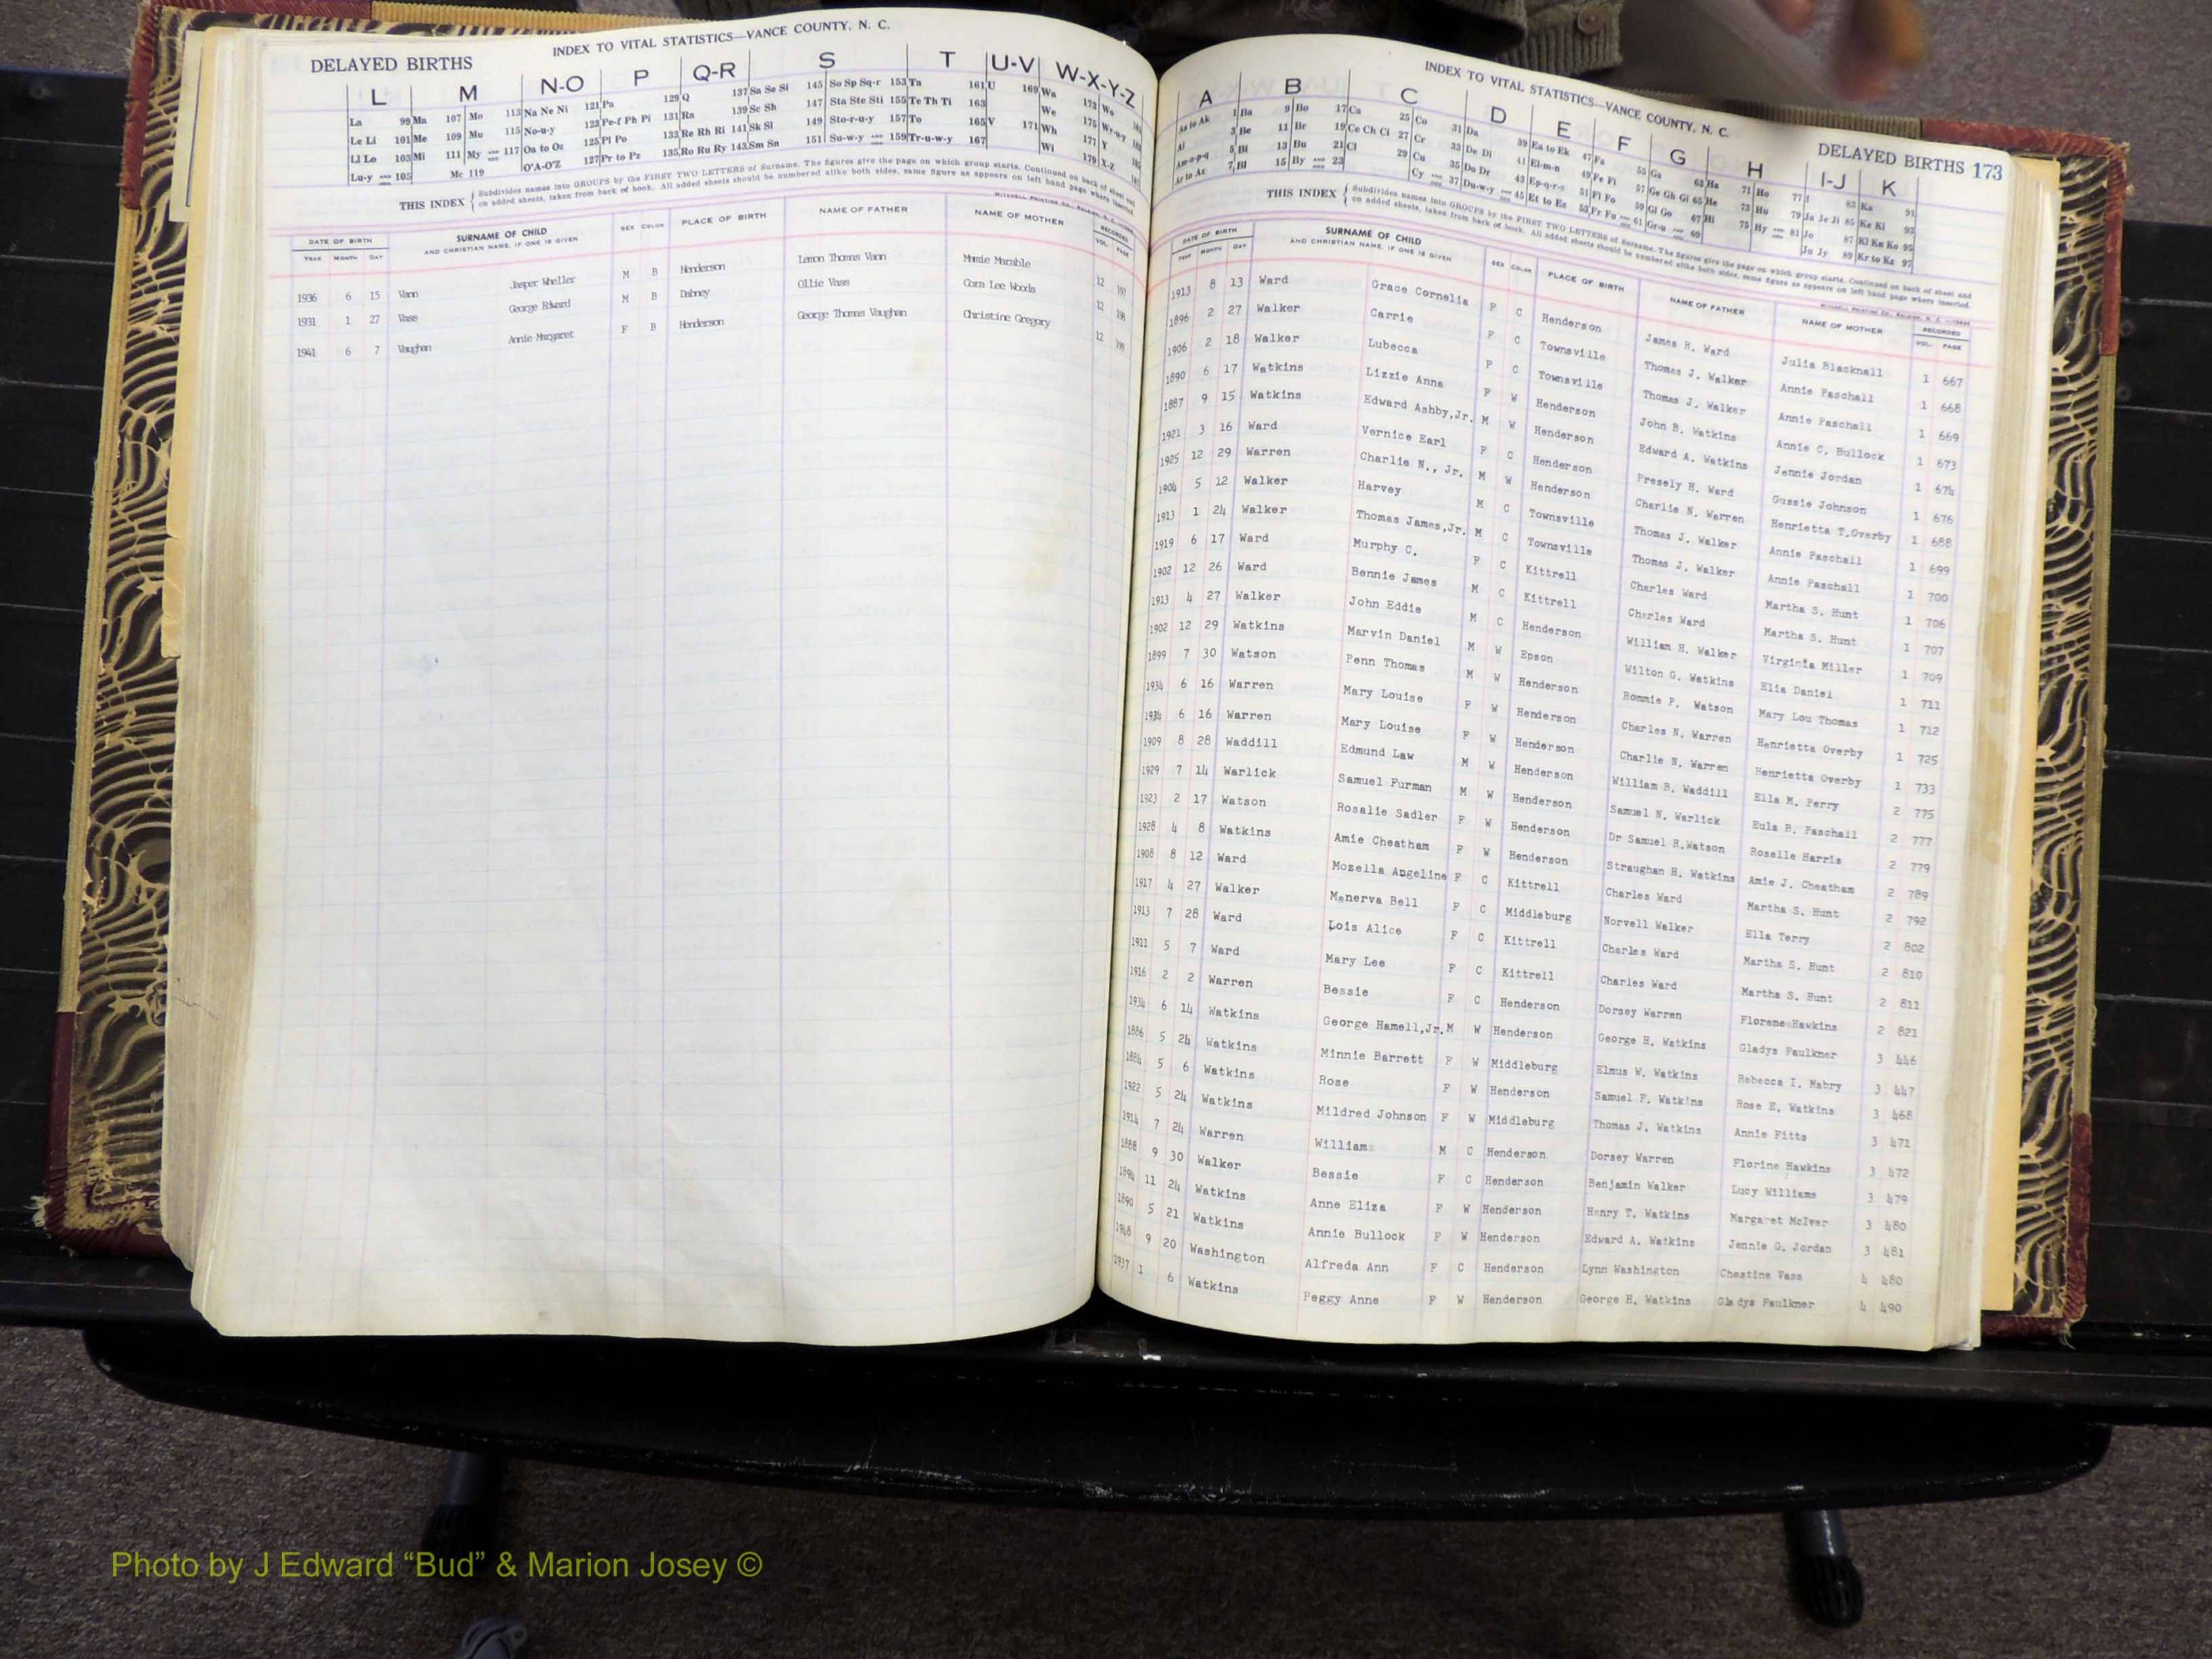 INDEX TO VITAL STATISTICS—VANCE COUNTY, N. C.
DELAYED BIRTHS
L M N-O P Q-R S T U-V W-X-Y-Z
La 99 Ma 107 Mo 113 Na Ne Ni 121 Pa 129 Q 137 Sa Se Si 145 So Sp Sq-r 153 Ta 161 U 169 Wa 173 Wo
Le Li 101 Me 109 Mu 115 No-u-y 123 Pe-f Ph Pi 131 Ra 139 Sc Sh 147 Sta Ste Sti 155 Te Th Ti 163 We 175 Wr-u-y
Ll Lo 103 Mi 111 My AND 117 Oa to Oz 125 Pl Po 133 Re Rh Ri 141 Sk Sl 149 Sto-r-u-y 157 To 165 V 171 Wh 177 Y
Lu-y AND 105 Mc 119 O'A-O'Z 127 Pr to Pz 135 Ro Ru Ry 143 Sm Sn 151 Su-w-y AND 159 Tr-u-w-y 167 Wi 179 X-Z
THIS INDEX { Subdivides names into GROUPS by the FIRST TWO LETTERS of Surname. The figures give the page on which group starts. Continued on back of sheet and
on added sheets, taken from back of book. All added sheets should be numbered alike both sides, same figure as appears on left hand page where inserted.
MITCHELL PRINTING CO., RALEIGH, N. C.
DATE OF BIRTH SURNAME OF CHILD SEX COLOR PLACE OF BIRTH NAME OF FATHER NAME OF MOTHER RECORDED
YEAR MONTH DAY AND CHRISTIAN NAME, IF ONE IS GIVEN VOL. PAGE
1936 6 15 Vann Jasper Wheller M B Henderson Lemon Thomas Vann Mamie Marable 12 197
1931 1 27 Vass George Edward M B Dabney Ollie Vass Cora Lee Woods 12 198
1941 6 7 Vaughan Annie Margaret F B Henderson George Thomas Vaughan Christine Gregory 12 199
INDEX TO VITAL STATISTICS—VANCE COUNTY, N. C.
DELAYED BIRTHS 173
A B C D E F G H I-J K
Aa to Ak 1 Ba 9 Bo 17 Ca 25 Co 31 Da 39 Ea to Ek 47 Fa 55 Ga 63 Ha 71 Ho 77 I 83 Ka 91
Al 3 Be 11 Br 19 Ce Ch Ci 27 Cr 33 De Di 41 El-m-n 49 Fe Fi 57 Ge Gh Gi 65 He 73 Hu 79 Ja Je Ji 85 Ke Ki 93
Am-n-p-q 5 Bi 13 Bu 21 Cl 29 Cu 35 Do Dr 43 Ep-q-r-s 51 Fl Fo 59 Gl Go 67 Hi 75 Hy AND 81 Jo 87 Kl Kn Ko 95
Ar to Az 7 Bl 15 By AND 23 Cy AND 37 Du-w-y AND 45 Et to Ez 53 Fr Fu AND 61 Gr-u AND 69 Ju Jy 89 Kr to Kz 97
THIS INDEX { Subdivides names into GROUPS by the FIRST TWO LETTERS of Surname. The figures give the page on which group starts. Continued on back of sheet and
on added sheets, taken from back of book. All added sheets should be numbered alike both sides, same figure as appears on left hand page where inserted.
MITCHELL PRINTING CO., RALEIGH, N. C.
DATE OF BIRTH SURNAME OF CHILD SEX COLOR PLACE OF BIRTH NAME OF FATHER NAME OF MOTHER RECORDED
YEAR MONTH DAY AND CHRISTIAN NAME, IF ONE IS GIVEN VOL. PAGE
1913 8 13 Ward Grace Cornelia F C Henderson James H. Ward Julia Blacknall 1 667
1896 2 27 Walker Carrie F C Townsville Thomas J. Walker Annie Paschall 1 668
1906 2 18 Walker Lubecca F C Townsville Thomas J. Walker Annie Paschall 1 669
1890 6 17 Watkins Lizzie Anna F W Henderson John B. Watkins Annie C. Bullock 1 673
1887 9 15 Watkins Edward Ashby,Jr. M W Henderson Edward A. Watkins Jennie Jordan 1 674
1921 3 16 Ward Vernice Earl F C Henderson Presely H. Ward Gussie Johnson 1 676
1925 12 29 Warren Charlie N., Jr. M W Henderson Charlie N. Warren Henrietta T.Overby 1 688
1904 5 12 Walker Harvey M C Townsville Thomas J. Walker Annie Paschall 1 699
1913 1 24 Walker Thomas James,Jr. M C Townsville Thomas J. Walker Annie Paschall 1 700
1919 6 17 Ward Murphy C. F C Kittrell Charles Ward Martha S. Hunt 1 706
1902 12 26 Ward Bennie James M C Kittrell Charles Ward Martha S. Hunt 1 707
1913 4 27 Walker John Eddie M C Henderson William H. Walker Virginia Miller 1 709
1902 12 29 Watkins Marvin Daniel M W Epson Wilton G. Watkins Elia Daniel 1 711
1899 7 30 Watson Penn Thomas M W Henderson Rommie P. Watson Mary Lou Thomas 1 712
1934 6 16 Warren Mary Louise F W Henderson Charles N. Warren Henrietta Overby 1 725
1934 6 16 Warren Mary Louise F W Henderson Charlie N. Warren Henrietta Overby 1 733
1909 8 28 Waddill Edmund Law M W Henderson William B. Waddill Ella M. Perry 2 775
1929 7 14 Warlick Samuel Furman M W Henderson Samuel N. Warlick Eula B. Paschall 2 777
1923 2 17 Watson Rosalie Sadler F W Henderson Dr Samuel R.Watson Roselle Harris 2 779
1928 4 8 Watkins Amie Cheatham F W Henderson Straughan H. Watkins Amie J. Cheatham 2 789
1908 8 12 Ward Mozella Angeline F C Kittrell Charles Ward Martha S. Hunt 2 792
1917 4 27 Walker Manerva Bell F C Middleburg Norvell Walker Ella Terry 2 802
1913 7 28 Ward Lois Alice F C Kittrell Charles Ward Martha S. Hunt 2 810
1911 5 7 Ward Mary Lee F C Kittrell Charles Ward Martha S. Hunt 2 811
1916 2 2 Warren Bessie F C Henderson Dorsey Warren Florene Hawkins 2 821
1934 6 14 Watkins George Hamell,Jr. M W Henderson George H. Watkins Gladys Faulkner 3 446
1886 5 24 Watkins Minnie Barrett F W Middleburg Elmus W. Watkins Rebecca I. Mabry 3 447
1884 5 6 Watkins Rose F W Henderson Samuel F. Watkins Rose E. Watkins 3 468
1922 5 24 Watkins Mildred Johnson F W Middleburg Thomas J. Watkins Annie Fitts 3 471
1914 7 24 Warren Williams M C Henderson Dorsey Warren Florine Hawkins 3 472
1888 9 30 Walker Bessie F C Henderson Benjamin Walker Lucy Williams 3 479
1894 11 24 Watkins Anne Eliza F W Henderson Henry T. Watkins Margaret McIver 3 480
1890 5 21 Watkins Annie Bullock F W Henderson Edward A. Watkins Jennie G. Jordan 3 481
1948 9 20 Washington Alfreda Ann F C Henderson Lynn Washington Chestine Vass 4 480
1937 1 6 Watkins Peggy Anne F W Henderson George H. Watkins Gladys Faulkner 4 490
Photo by J Edward “Bud” & Marion Josey ©